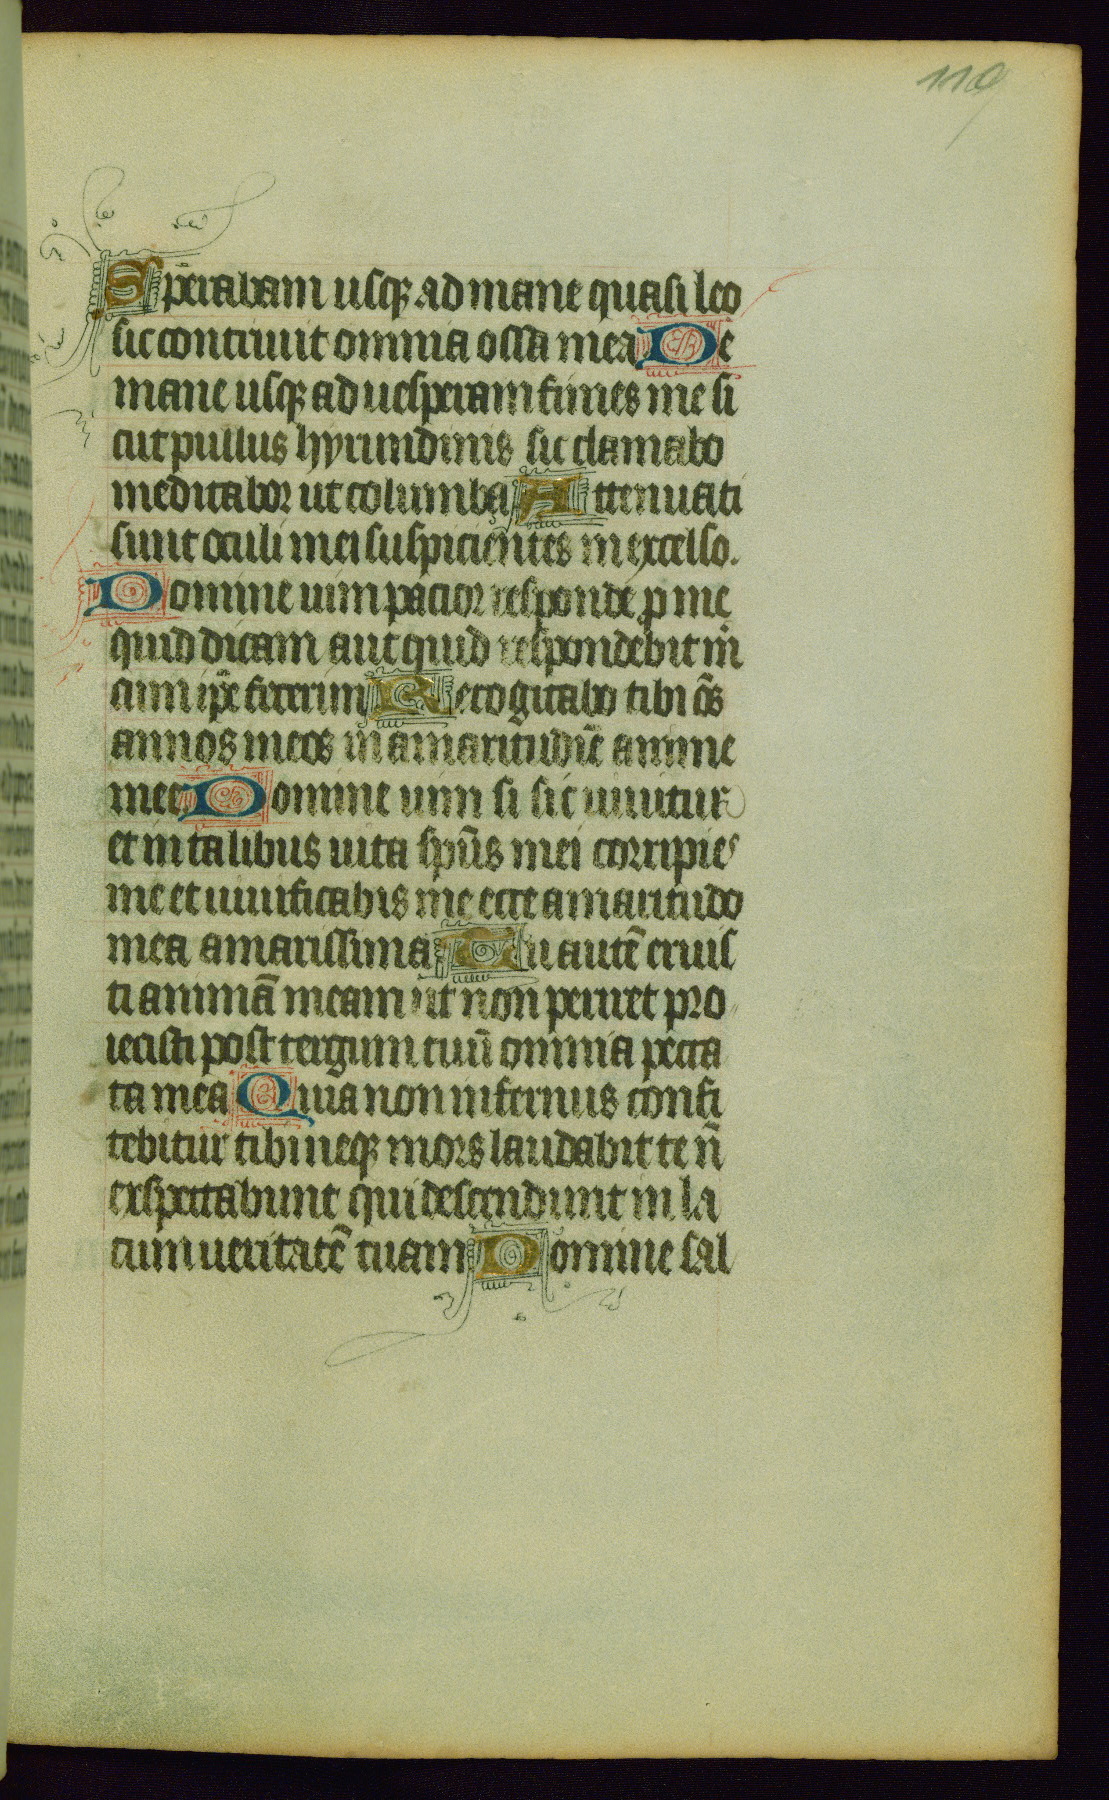 119
Sperabam usq̄ ad mane quasi leo
sic contrivit omnia ossa mea De
mane usq̄ ad uesperam finies me si
cut pullus hyrundinis sic clamabo
meditabor ut columba Attenuati
sunt oculi mei suspicientes in excelso.
Domine uim pacior responde p̱ me
quid dicam aut quid respondebit m̄
cum ip̄e fecerim Recogitabo tibi o͞s
annos meos in amaritudīe anime
mee Domine uim si sic uiuitur
et in talibus uita sp̄us mei corripies
me et uiuificabis me ecce amaritudo
mea amarissima Tu autē eruis
ti animā meam ut non periret pro
iecisti post tergum tuū omnia pecca
ta mea Quia non infernus confi
tebitur tibi neq̄ mors laudabit te n̄
exspectabunt qui descendunt in la
cum ueritatē tuam Domine sal